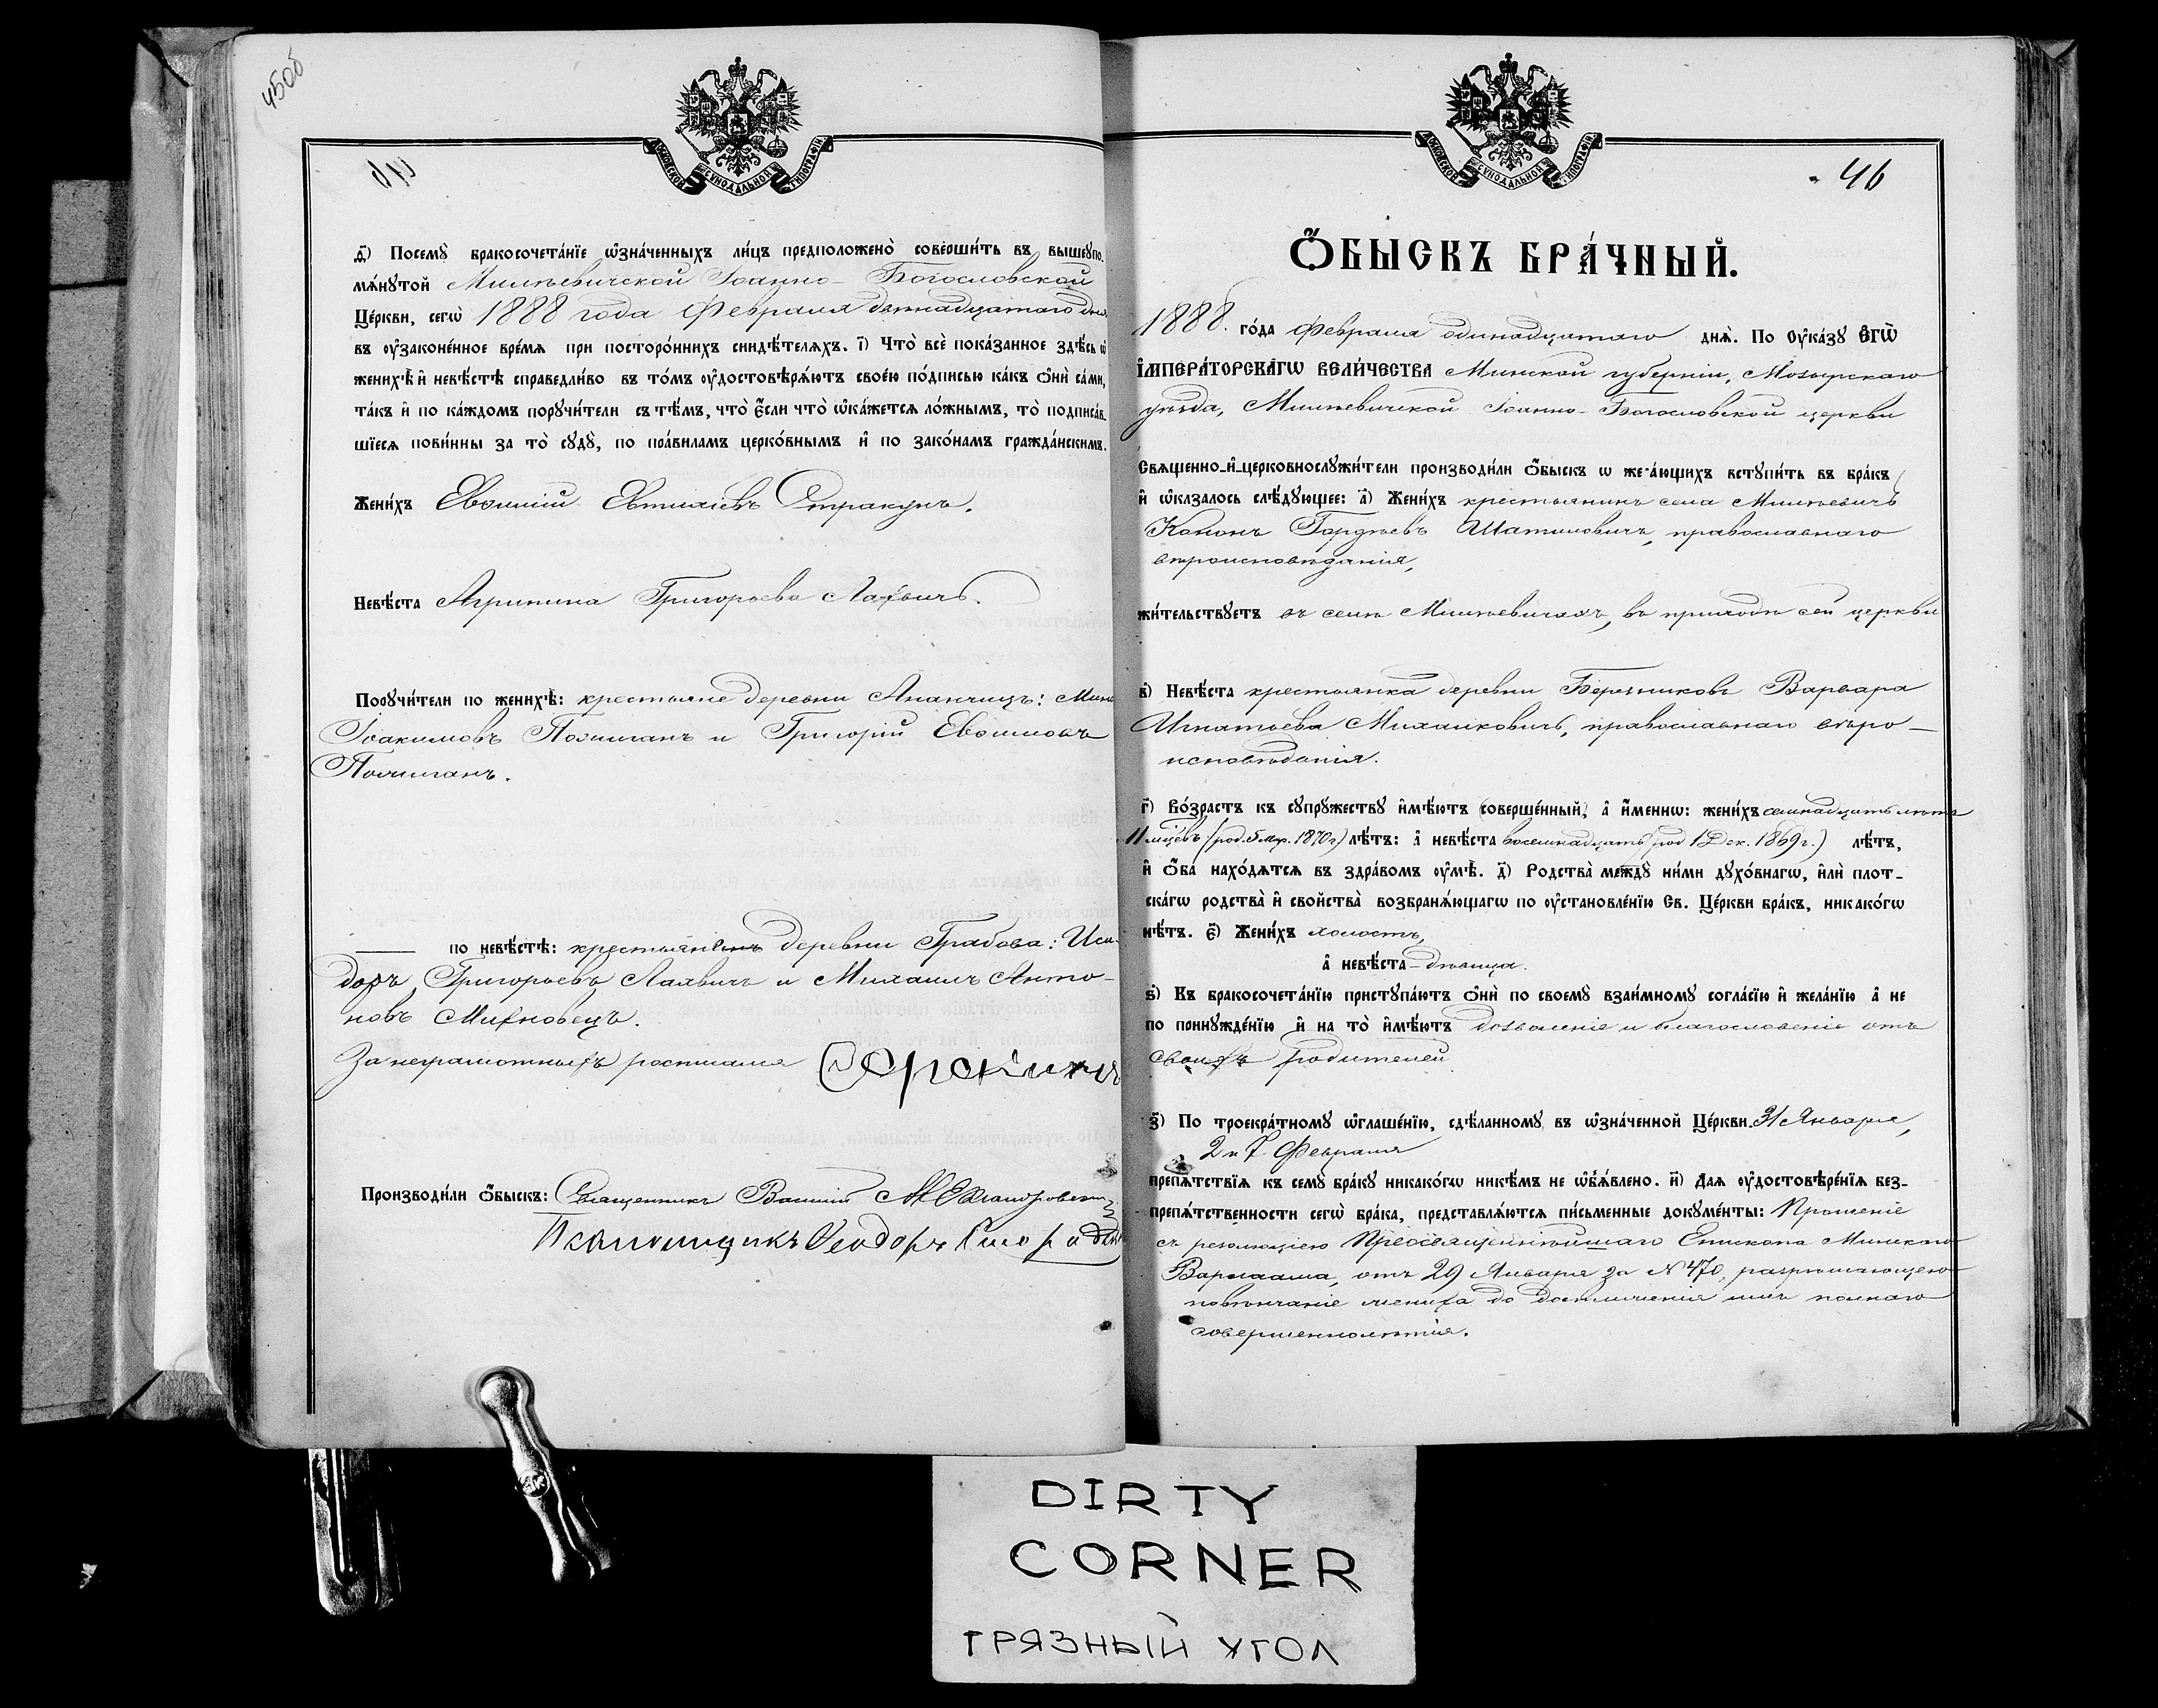 45об
МОСКОВСКОЙ СУНОДАЛЬНОЙ ТИПОГРАФІИ
д҃) Посемꙋ̀ бракосочета́нїе ѡ҆зна́ченныхъ ли́цъ предположено̀ соверши́ть въ вышеꙋпо-
мѧ́нꙋтой Милѣвичской Іоанно-Богословской
Це́ркви, сегѡ̀ 1888 года Февраля двѣнадцатаго дня
въ ᲂу҆законе́нное вре́мѧ при посторо́ннихъ свидѣ́телѧхъ. і҃) Что̀ всѐ пока́занное здѣ́сь ѡ҆
женихѣ̀ и҆ невѣ́стѣ справедли́во въ то́мъ ᲂу҆достовѣрѧ́ютъ свое́ю по́дписью ка́къ ѻ҆нѝ са́ми,
та́къ и҆ по ка́ждомъ порꙋчи́тели съ тѣ́мъ, что̀ є҆́сли что̀ ѡ҆ка́жетсѧ ло́жнымъ, то̀ подписа́в-
шїесѧ пови́нны за то̀ сꙋдꙋ̀, по пра́виламъ церко́внымъ и҆ по зако́намъ гражда́нскимъ.
Жени́хъ Евѳимій Евтихіевъ Стракунъ.
Невѣ́ста Агрипина Григорьева Лахвичъ.
Порꙋчи́тели по женихѣ̀: крестьяне деревни Ананчицъ: Мина
Іоакимовъ Полиганъ и Григорій Евѳимовъ
Полиганъ.
по невѣ́стѣ: крестьяне деревни Грабова: Иси-
доръ Григорьевъ Лахвичъ и Михаилъ Анто-
новъ Михновецъ.
За неграмотныхъ росписался
Производи́ли ѻ҆́быскъ: Священникъ Василій
Псаломщикъ Ѳеодоръ
МОСКОВСКОЙ СУНОДАЛЬНОЙ ТИПОГРАФІИ
46
Ѻ҆́БЫСКЪ БРА́ЧНЫЙ.
1888. го́да Февраля одинадцатаго днѧ̀. По Оу҆ка́зꙋ Є҆ГѠ̀
І҆МПЕРА́ТОРСКАГѠ ВЕЛИ́ЧЕСТВА Минской губерніи, Мозырскаго
уѣзда, Милѣвичской Іоанно-Богословской церкви
Свѧще́нно-и҆-церковнослꙋжи́тели производи́ли ѻ҆́быскъ ѡ жела́ющихъ встꙋпи́ть въ бра́къ
и҆ ѡ҆казалось слѣ́дꙋющее: а҃) Жени́хъ крестьянинъ села Милѣвичъ
Кононъ Гордѣевъ Шатиловичъ, православнаго
вѣроисповѣданія,
жи́тельствꙋетъ въ селѣ Милѣвичахъ, въ приходѣ сей церкви
в҃) Невѣ́ста крестьянка деревни Березниковъ Варвара
Игнатьева Михалковичъ, православнаго вѣро-
исповѣданія.
г҃) Во́зрастъ къ сꙋпрꙋ́жествꙋ и҆мѣ́ютъ совершённый, а҆ и҆́меннѡ: жени́хъ семнадцать лѣтъ
11 мѣсцевъ (род. 5 Мар. 1870 г.) лѣ́тъ: а҆ невѣ́ста восемнадцать (род 1 Дек. 1869 г.) лѣ́тъ,
и҆ ѻ҆́ба нахо́дѧтсѧ въ здра́вомъ ᲂу҆мѣ̀. д҃) Родства̀ междꙋ̀ ни́ми дꙋхо́внагѡ, и҆лѝ плот-
ска́гѡ родства̀ и҆ сво́йства возбранѧ́ющагѡ по ᲂу҆становле́нїю Св. Це́ркви бра́къ, никако́гѡ
нѣ́тъ. є҃) Жени́хъ холостъ,
а҆ невѣ́ста - дѣвица.
ѕ҃) Къ бракосочета́нїю пристꙋпа́ютъ ѻ҆нѝ по своемꙋ̀ взаи́мномꙋ согла́сїю и҆ жела́нїю а҆ не
по принꙋжде́нїю и҆ на то̀ и҆мѣ́ютъ дозволеніе и благословеніе отъ
своихъ родителей
з҃) По троекра́тномꙋ ѡ҆глаше́нїю, сдѣ́ланномꙋ въ ѡ҆зна́ченной Це́ркви 31 Января,
2 и 7 Февраля
препѧ́тствїѧ къ семꙋ̀ бра́кꙋ никако́гѡ никѣ́мъ не ѡ҆б̾ѧ́влено. и҃) Длѧ ᲂу҆достовѣре́нїѧ без-
препѧ́тственности сегѡ̀ бра́ка, представлѧ́ютсѧ пи́сьменные докꙋме́нты: Прошеніе
съ резолюціею Преосвященнѣйшаго Епископа Минскаго
Варлаама, отъ 29 Января за № 470, разрѣшающею
повѣнчаніе жениха до достиженія имъ полнаго
совершеннолѣтія.
DIRTY
CORNER
ГРЯЗНЫЙ УГОЛ